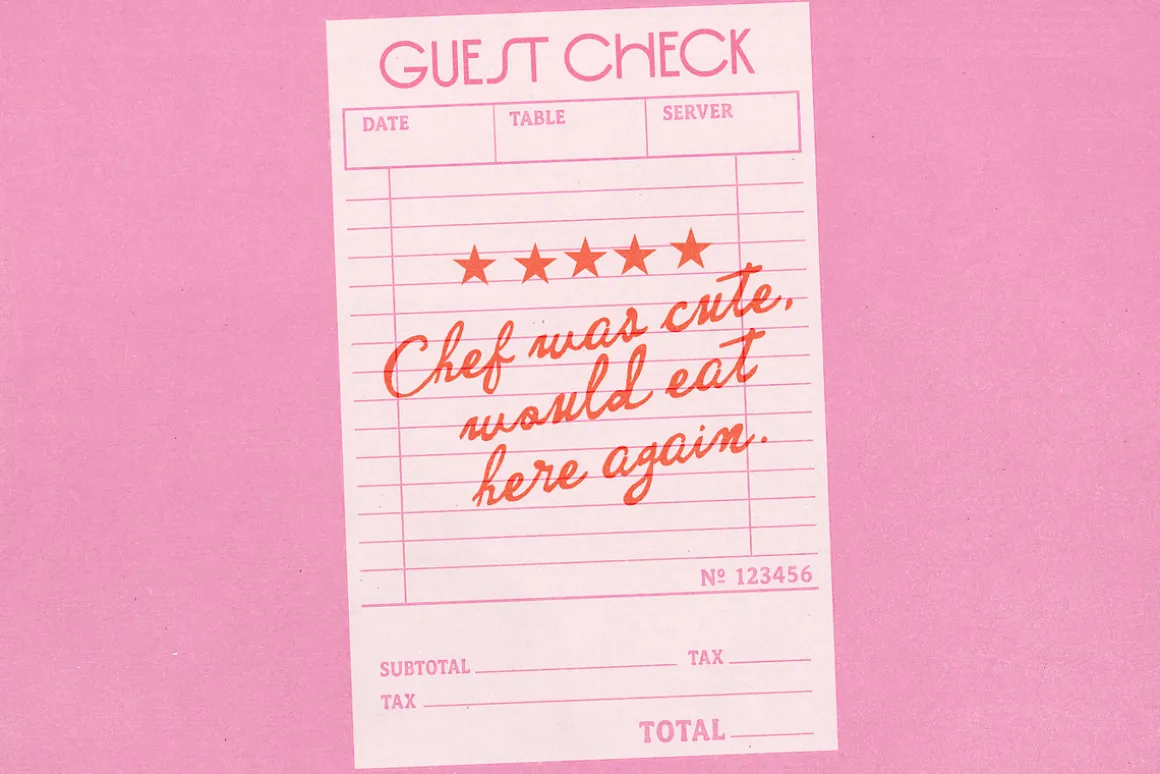 GUEST CHECK
DATE TABLE SERVER
★ ★ ★ ★ ★
Chef was cute,
would eat
here again.
Nº 123456
SUBTOTAL TAX
TAX
TOTAL